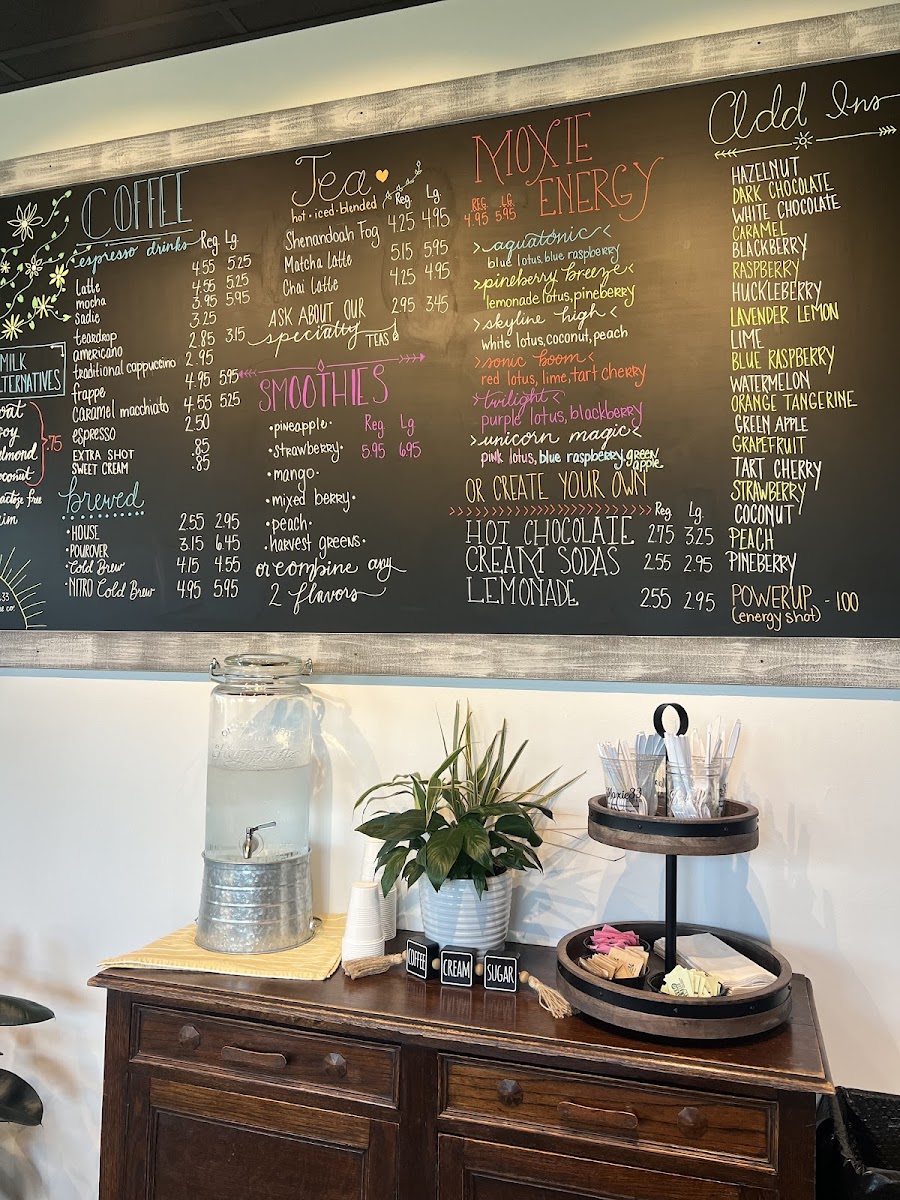 COFFEE
espresso drinks Reg. Lg.
latte 4.55 5.25
mocha 4.55 5.25
sadie 3.95 5.95
teardrop 3.25
americano 2.85 3.15
traditional cappuccino 2.95
frappe 4.95 5.95
caramel macchiato 4.55 5.25
espresso 2.50
EXTRA SHOT .85
SWEET CREAM .85
MILK
ALTERNATIVES
oat
soy
almond
coconut
.75
brewed
•HOUSE 2.55 2.95
•POUROVER 3.15 6.45
•Cold Brew 4.15 4.55
•NITRO Cold Brew 4.95 5.95
Tea
hot·iced·blended Reg. Lg.
Shenandoah Fog 4.25 4.95
Matcha Latte 5.15 5.95
Chai Latte 4.25 4.95
ASK ABOUT OUR 2.95 3.45
specialty TEAS
SMOOTHIES
•pineapple• Reg Lg
•strawberry• 5.95 6.95
•mango•
•mixed berry•
•peach•
•harvest greens•
or combine any
2 flavors
MOXIE
ENERGY
REG. LG.
4.95 5.95
>aquatonic<
blue lotus, blue raspberry
>pineberry breeze<
lemonade lotus, pineberry
>skyline high<
white lotus, coconut, peach
>sonic boom<
red lotus, lime, tart cherry
>twilight<
purple lotus, blackberry
>unicorn magic<
pink lotus, blue raspberry, green apple
OR CREATE YOUR OWN
Reg. Lg.
HOT CHOCOLATE 2.75 3.25
CREAM SODAS 2.55 2.95
LEMONADE 2.55 2.95
Add Ins
HAZELNUT
DARK CHOCOLATE
WHITE CHOCOLATE
CARAMEL
BLACKBERRY
RASPBERRY
HUCKLEBERRY
LAVENDER LEMON
LIME
BLUE RASPBERRY
WATERMELON
ORANGE TANGERINE
GREEN APPLE
GRAPEFRUIT
TART CHERRY
STRAWBERRY
COCONUT
PEACH
PINEBERRY
POWERUP - 1.00
(energy shot)
COFFEE
CREAM
SUGAR